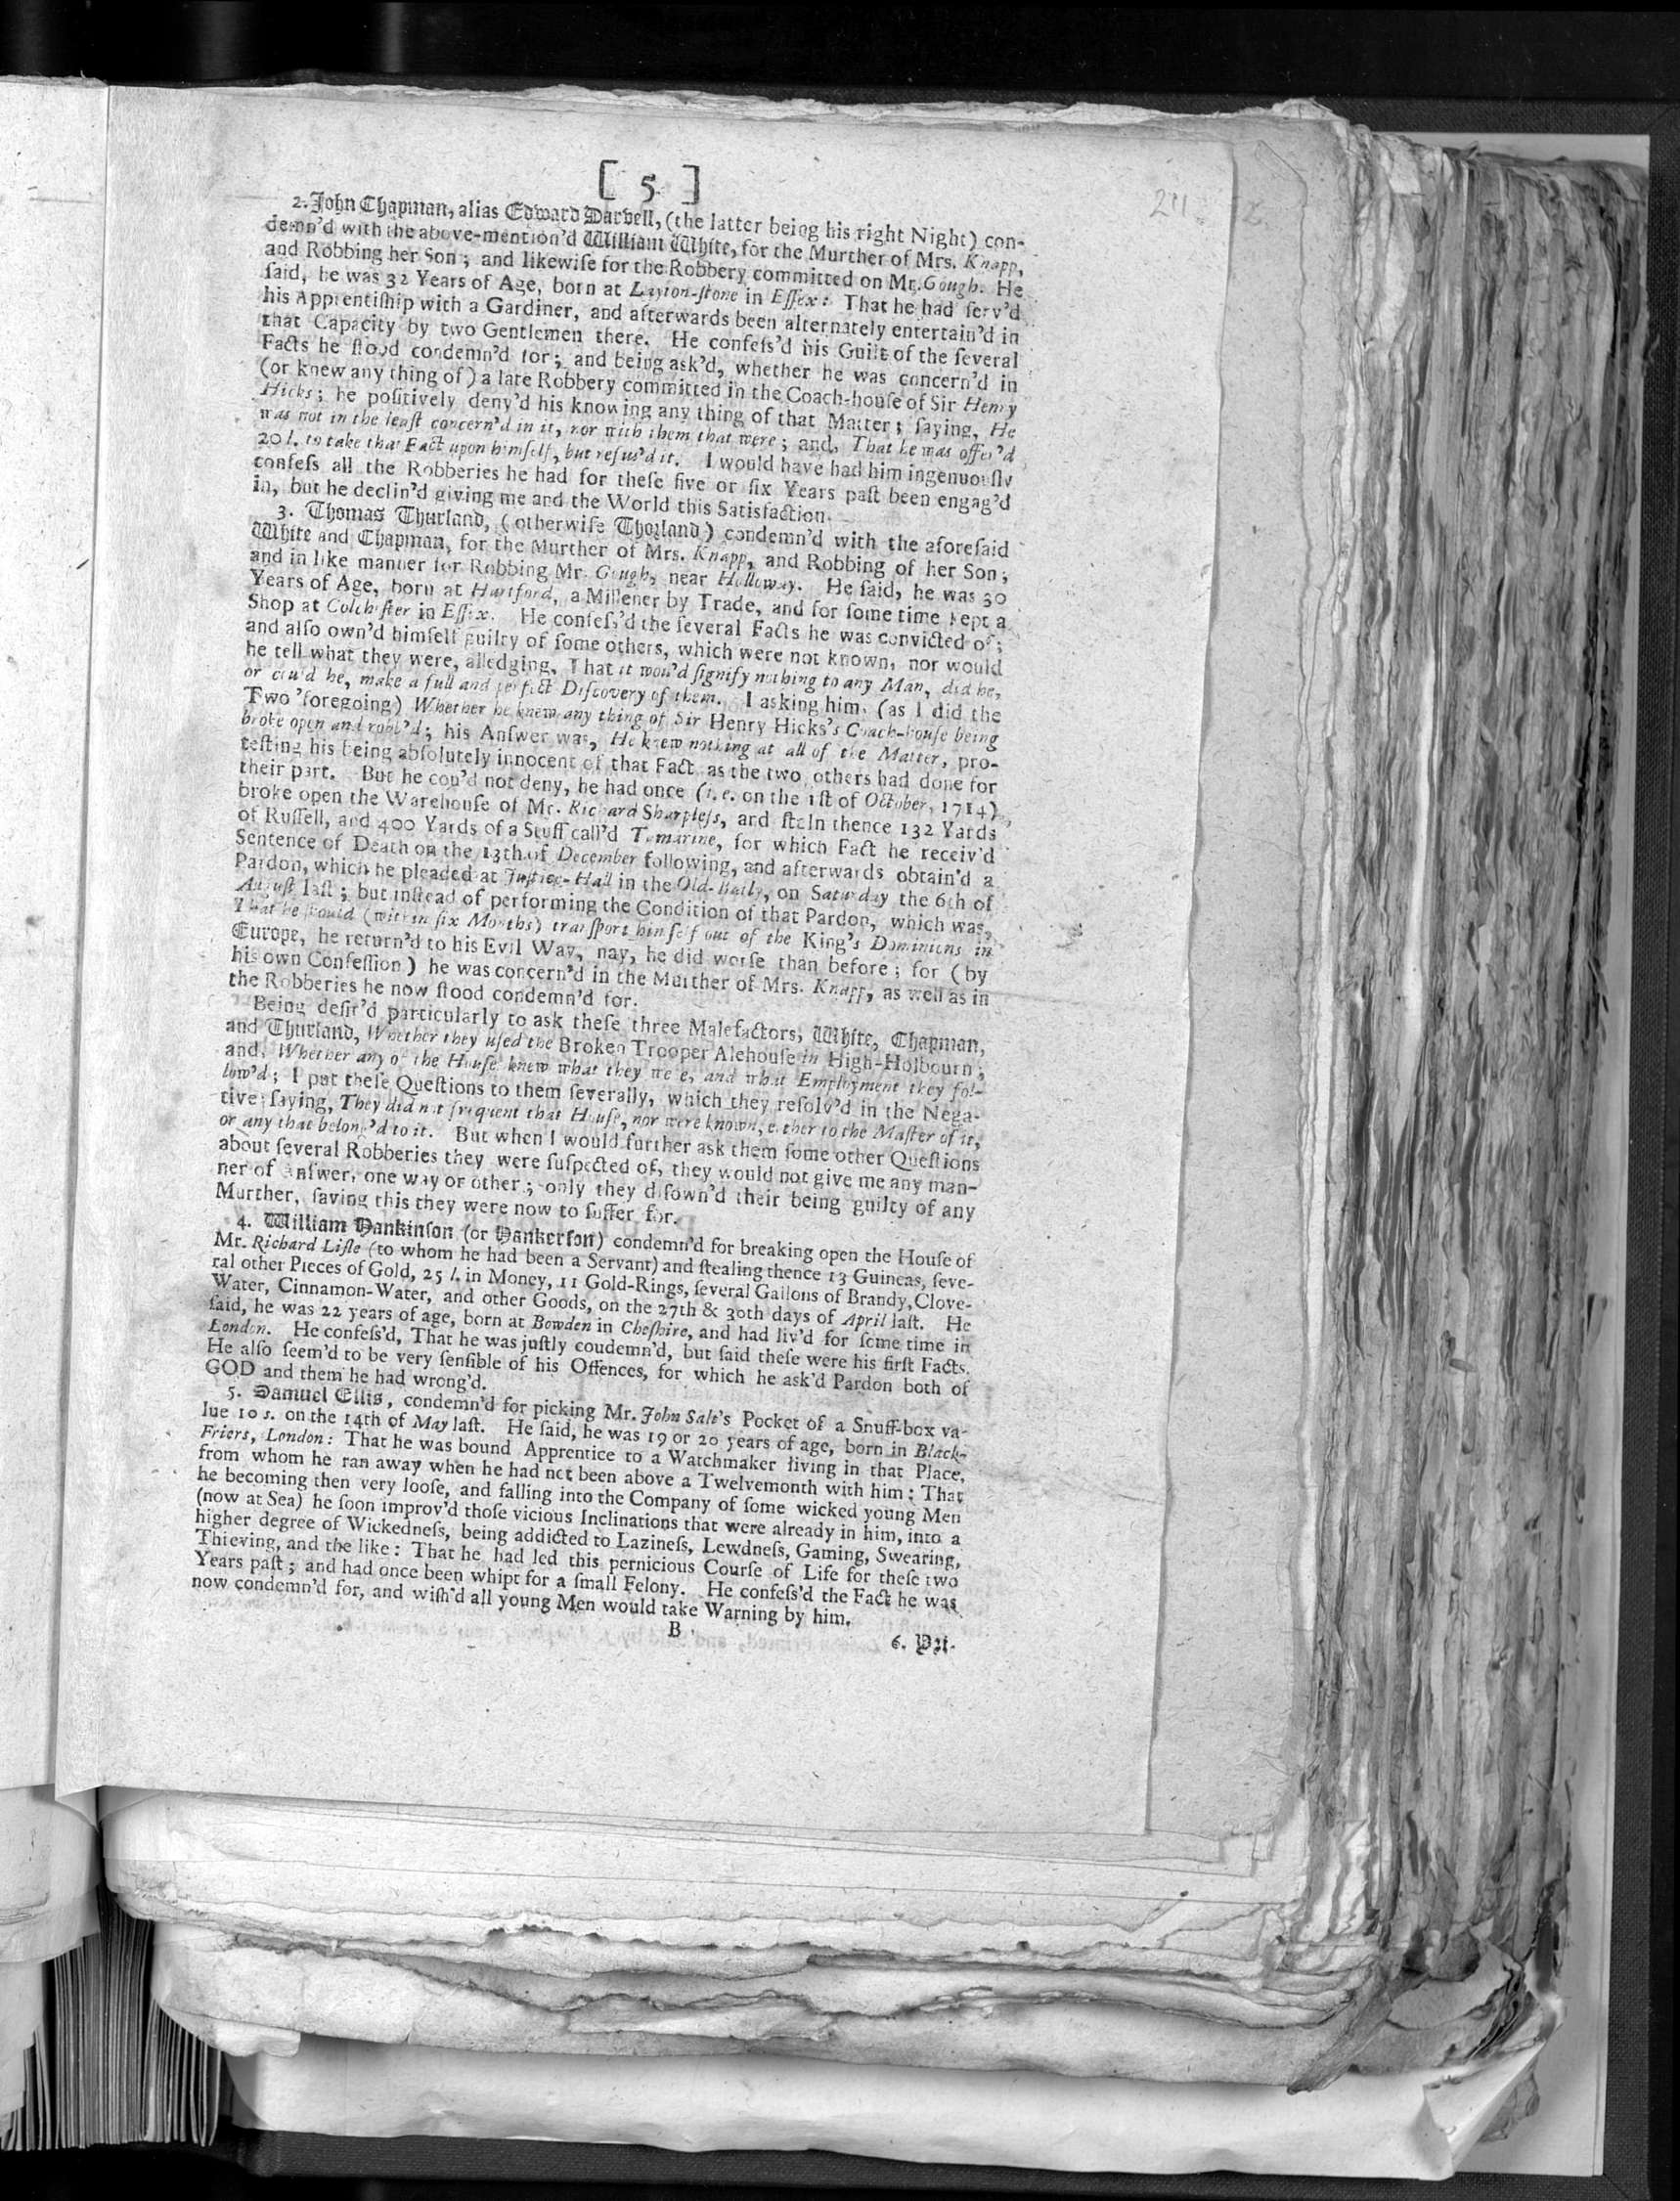 [ 5 ]
2. John Chapman, alias Edward Darvell, (the latter being his right Night) con-
demn'd with the above-mention'd William White, for the Murther of Mrs. Knapp,
and Robbing her Son; and likewiſe for the Robbery committed on Mr. Gough. He
ſaid, he was 32 Years of Age, born at Layton-ſtone in Eſſex: That he had ſerv'd
his Apprentiſhip with a Gardiner, and afterwards been alternately entertain'd in
that Capacity by two Gentlemen there. He confeſs'd his Guilt of the ſeveral
Facts he ſtood condemn'd for; and being ask'd, whether he was concern'd in
(or knew any thing of) a late Robbery committed in the Coach-houſe of Sir Henry
Hicks; he poſitively deny'd his knowing any thing of that Matter; ſaying, He
was not in the leaſt concern'd in it, nor with them that were; and, That he was offer'd
20 l. to take that Fact upon himſelf, but refus'd it. I would have had him ingenuouſly
confeſs all the Robberies he had for theſe five or ſix Years paſt been engag'd
in, but he declin'd giving me and the World this Satisfaction.
3. Thomas Thurland, (otherwiſe Thorland) condemn'd with the aforeſaid
White and Chapman, for the Murther of Mrs. Knapp, and Robbing of her Son;
and in like manner for Robbing Mr. Gough, near Holloway. He ſaid, he was 30
Years of Age, born at Hartford, a Millener by Trade, and for ſome time kept a
Shop at Colcheſter in Eſſex. He confeſs'd the ſeveral Facts he was convicted of;
and alſo own'd himſelf guilty of ſome others, which were not known, nor would
he tell what they were, alledging, That it wou'd ſignify nothing to any Man, did he,
or cou'd he, make a full and perfect Diſcovery of them. I asking him, (as I did the
Two 'foregoing) Whether he knew any thing of Sir Henry Hicks's Coach-houſe being
broke open and robb'd; his Anſwer was, He knew nothing at all of the Matter, pro-
teſting his being abſolutely innocent of that Fact, as the two others had done for
their part. But he cou'd not deny, he had once (i. e. on the 1ſt of October, 1714)
broke open the Warehouſe of Mr. Richard Sharpleſs, and ſtoln thence 132 Yards
of Ruſſell, and 400 Yards of a Stuff call'd Tamarine, for which Fact he receiv'd
Sentence of Death on the 13th of December following, and afterwards obtain'd a
Pardon, which he pleaded at Juſtice-Hall in the Old-Baily, on Saturday the 6th of
Auguſt laſt; but inſtead of performing the Condition of that Pardon, which was,
That he ſhould (within ſix Months) tranſport himſelf out of the King's Dominions in
Europe, he return'd to his Evil Way, nay, he did worſe than before; for (by
his own Confeſſion) he was concern'd in the Murther of Mrs. Knapp, as well as in
the Robberies he now ſtood condemn'd for.
Being deſir'd particularly to ask theſe three Malefactors, White, Chapman,
and Thurland, Whether they uſed the Broken Trooper Alehouſe in High-Holbourn;
and, Whether any of the Houſe knew what they were, and what Employment they fol-
low'd; I put theſe Queſtions to them ſeverally, which they reſolv'd in the Nega-
tive; ſaying, They did not frequent that Houſe, nor were known, either to the Maſter of it,
or any that belong'd to it. But when I would further ask them ſome other Queſtions
about ſeveral Robberies they were ſuſpected of, they would not give me any man-
ner of Anſwer, one way or other; only they diſown'd their being guilty of any
Murther, ſaving this they were now to ſuffer for.
4. William Hankinson (or Hankerson) condemn'd for breaking open the Houſe of
Mr. Richard Liſle (to whom he had been a Servant) and ſtealing thence 13 Guineas, ſeve-
ral other Pieces of Gold, 25 l. in Money, 11 Gold-Rings, ſeveral Gallons of Brandy, Clove-
Water, Cinnamon-Water, and other Goods, on the 27th & 30th days of April laſt. He
ſaid, he was 22 years of age, born at Bowden in Cheſhire, and had liv'd for ſome time in
London. He confeſs'd, That he was juſtly coudemn'd, but ſaid theſe were his firſt Facts.
He alſo ſeem'd to be very ſenſible of his Offences, for which he ask'd Pardon both of
GOD and them he had wrong'd.
5. Samuel Ellis, condemn'd for picking Mr. John Salt's Pocket of a Snuff-box va-
lue 10 s. on the 14th of May laſt. He ſaid, he was 19 or 20 years of age, born in Black-
Friers, London: That he was bound Apprentice to a Watchmaker living in that Place,
from whom he ran away when he had not been above a Twelvemonth with him: That
he becoming then very looſe, and falling into the Company of ſome wicked young Men
(now at Sea) he ſoon improv'd thoſe vicious Inclinations that were already in him, into a
higher degree of Wickedneſs, being addicted to Lazineſs, Lewdneſs, Gaming, Swearing,
Thieving, and the like: That he had led this pernicious Courſe of Life for theſe two
Years paſt; and had once been whipt for a ſmall Felony. He confeſs'd the Fact he was
now condemn'd for, and wiſh'd all young Men would take Warning by him.
B
6.